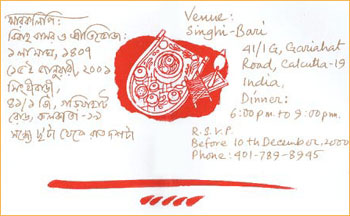 স্মারকলিপি:
বিবাহ বাসর ও প্রীতিভোজ:
১লা মাঘ, ১৪০৭
(১৫ই জানুয়ারী, ২০০১
সিংঘীবাড়ী,
৪১/১ জি, গড়িয়াহাট
রোড, কলকাতা-১৯
সন্ধ্যে ছ'টা থেকে রাত নটা
Venue:
Singhi-Bari
41/1G, Gariahat
Road, Calcutta-19
India,
Dinner:
6:00 pm to 9:00 pm.
R.S.V.P.
Before 10th December, 2000
Phone: 401-789-8945